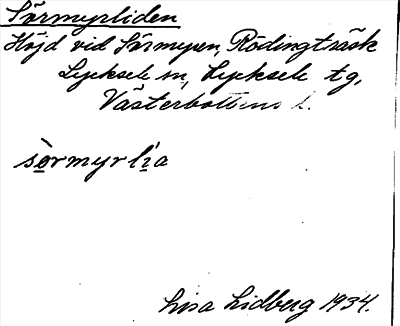 Sörmyrliden
Höjd vid Sörmyren, Rödingträsk
Lycksele sn, Lycksele tg,
Västerbottens l.
sörmyrlia
Lisa Lidberg 1934.